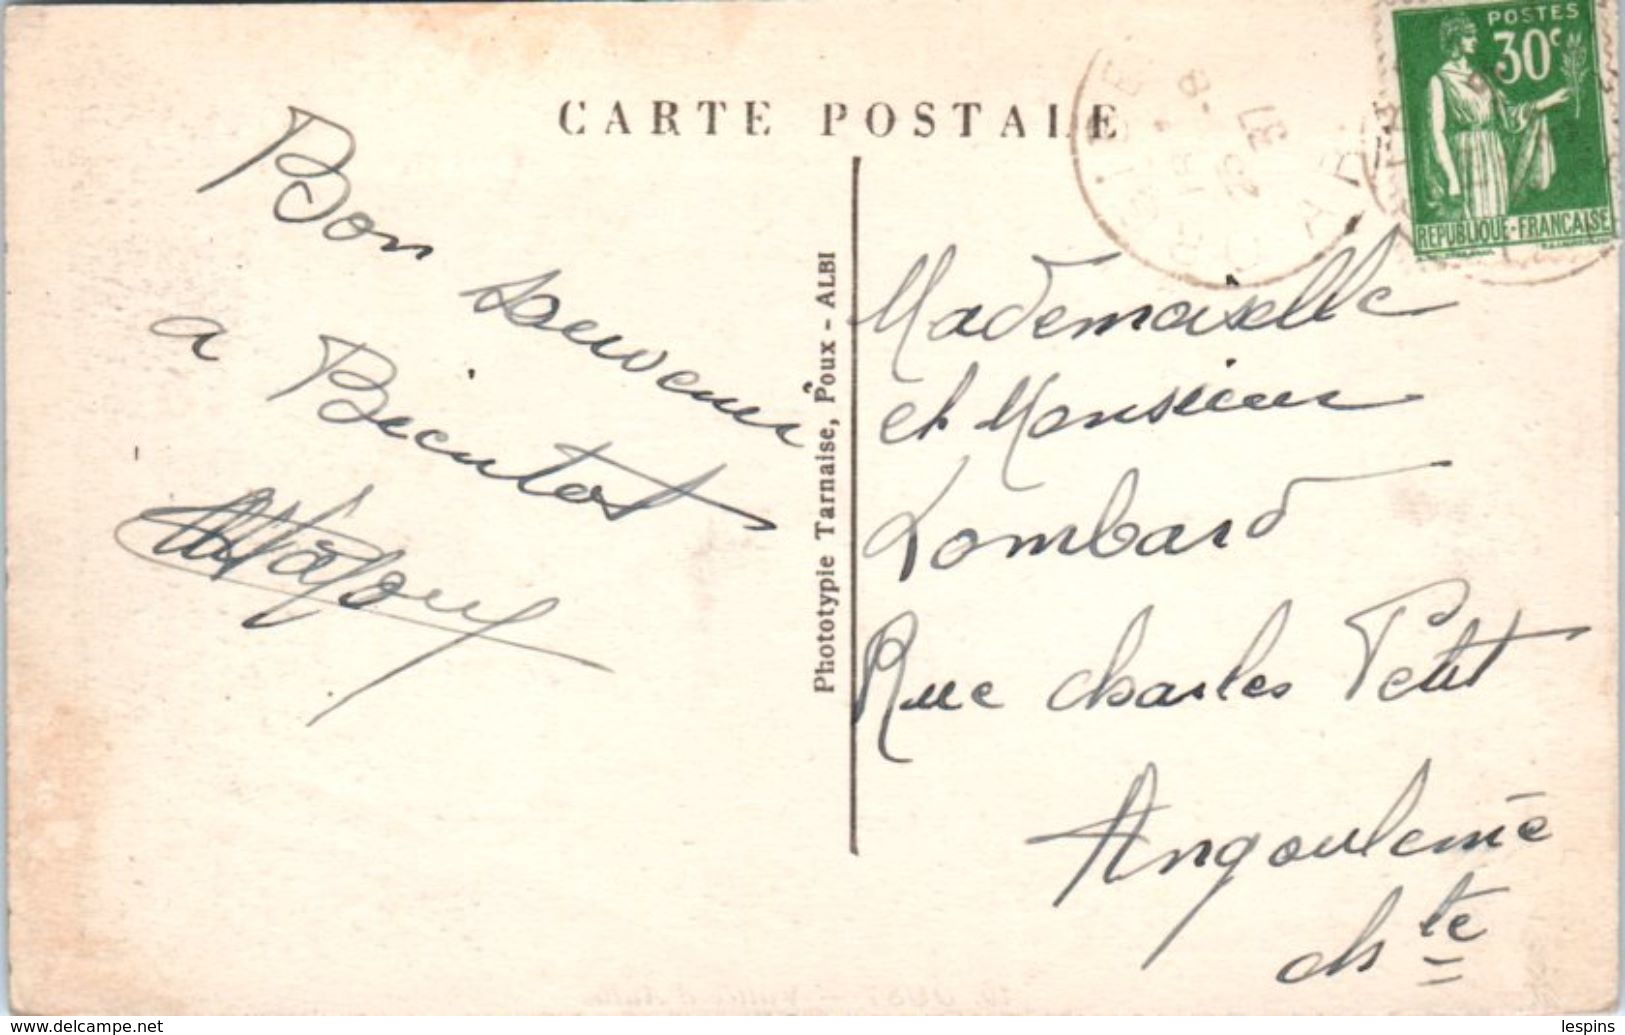 CARTE POSTALE
POSTES
30c
REPUBLIQUE-FRANCAISE
37
Bon souvenir
a Bientot
Phototypie Tarnaise, Poux - ALBI
Mademoiselle
et Monsieur
Lombard
Rue Charles Petit
Angoulême
chte
lespins
www.delcampe.net